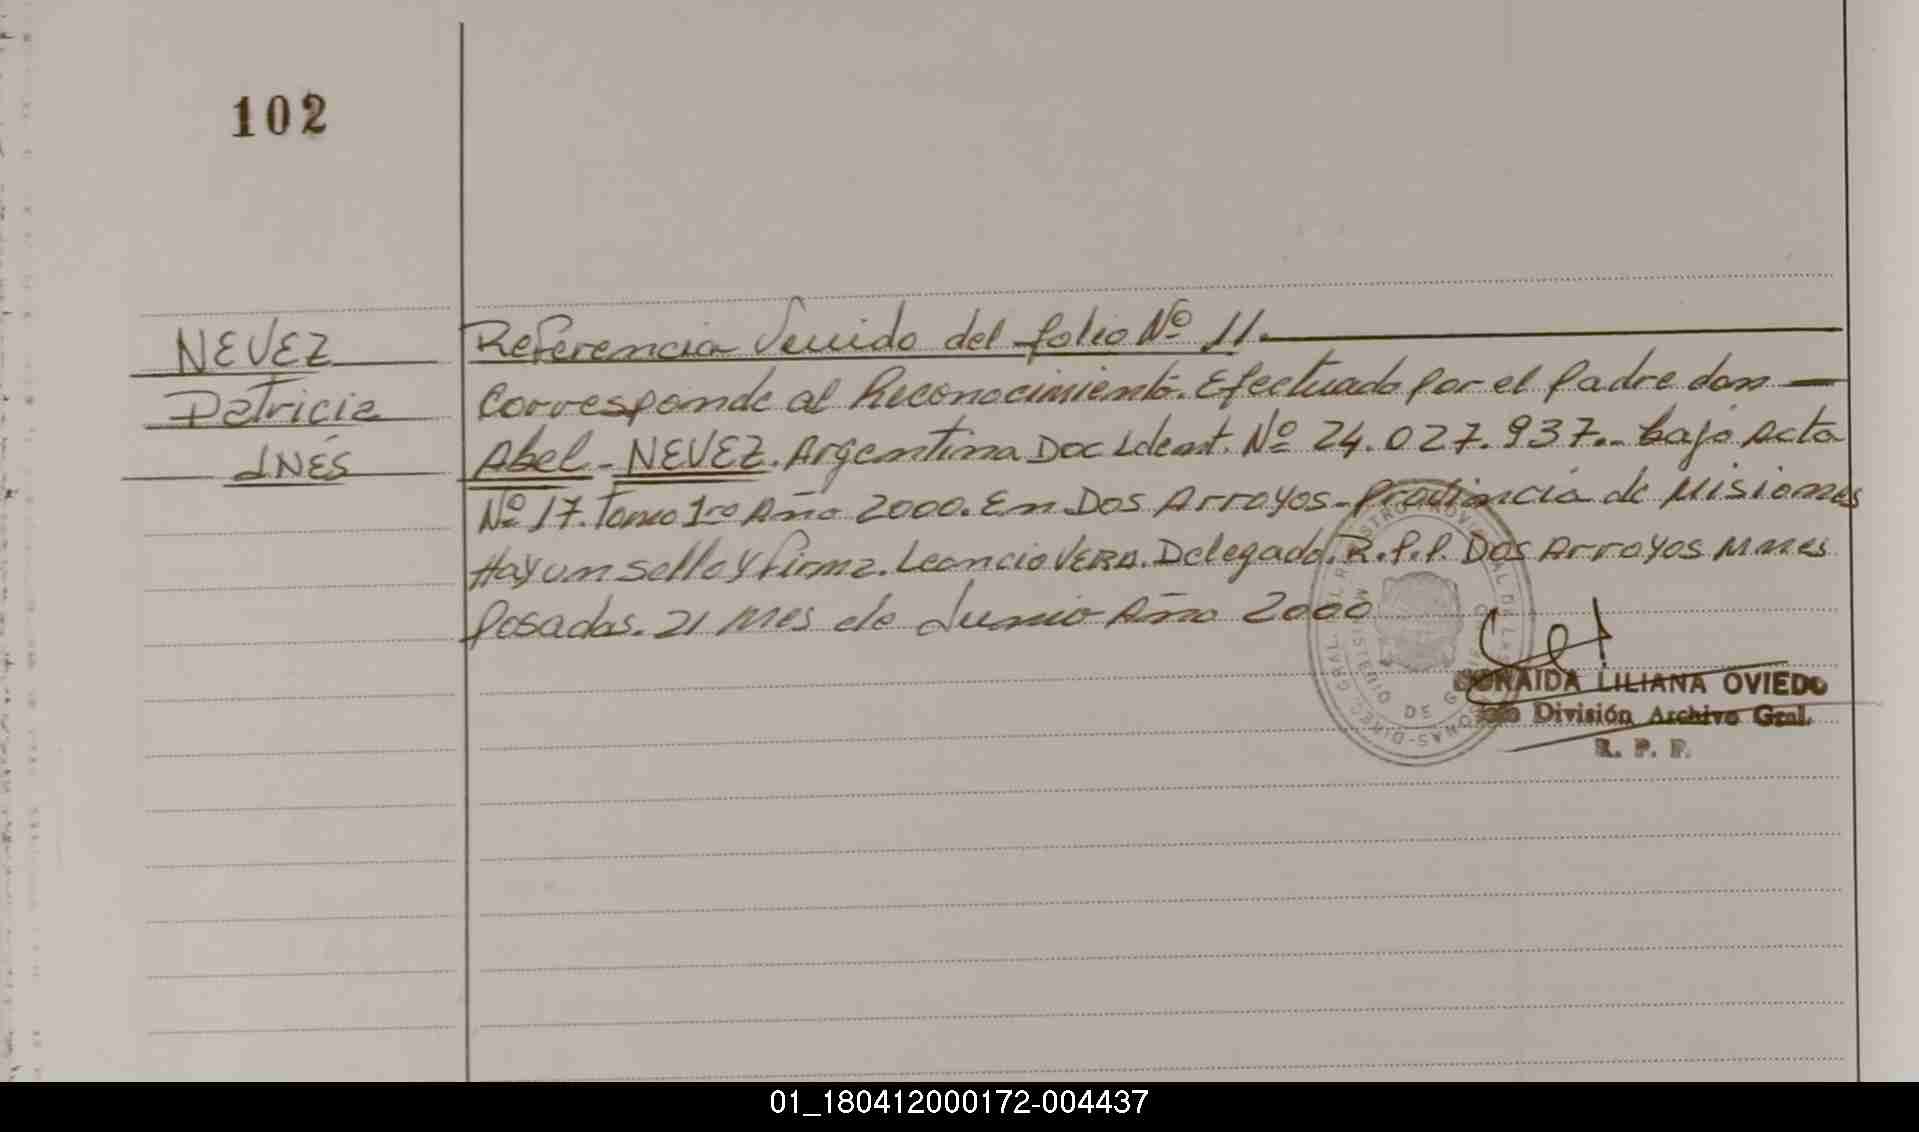 102
NEVEZ
Patricia
INÉS
Referencia Venido del folio Nº 11.
Corresponde al Reconocimiento. Efectuado por el padre don
Abel - NEVEZ. Argentina Doc Ident. Nº 24.027.937.- bajo Acta
Nº 17. Tomo 1ro Año 2000. En Dos Arroyos - Provincia de Misiones
Hay un sello y firma. Leoncio VERA. Delegado. R.P.P. Dos Arroyos Mnes
Posadas. 21 Mes de Junio Año 2000
LILIANA OVIEDO
División Archivo Gral.
R. P. P.
01_180412000172-004437